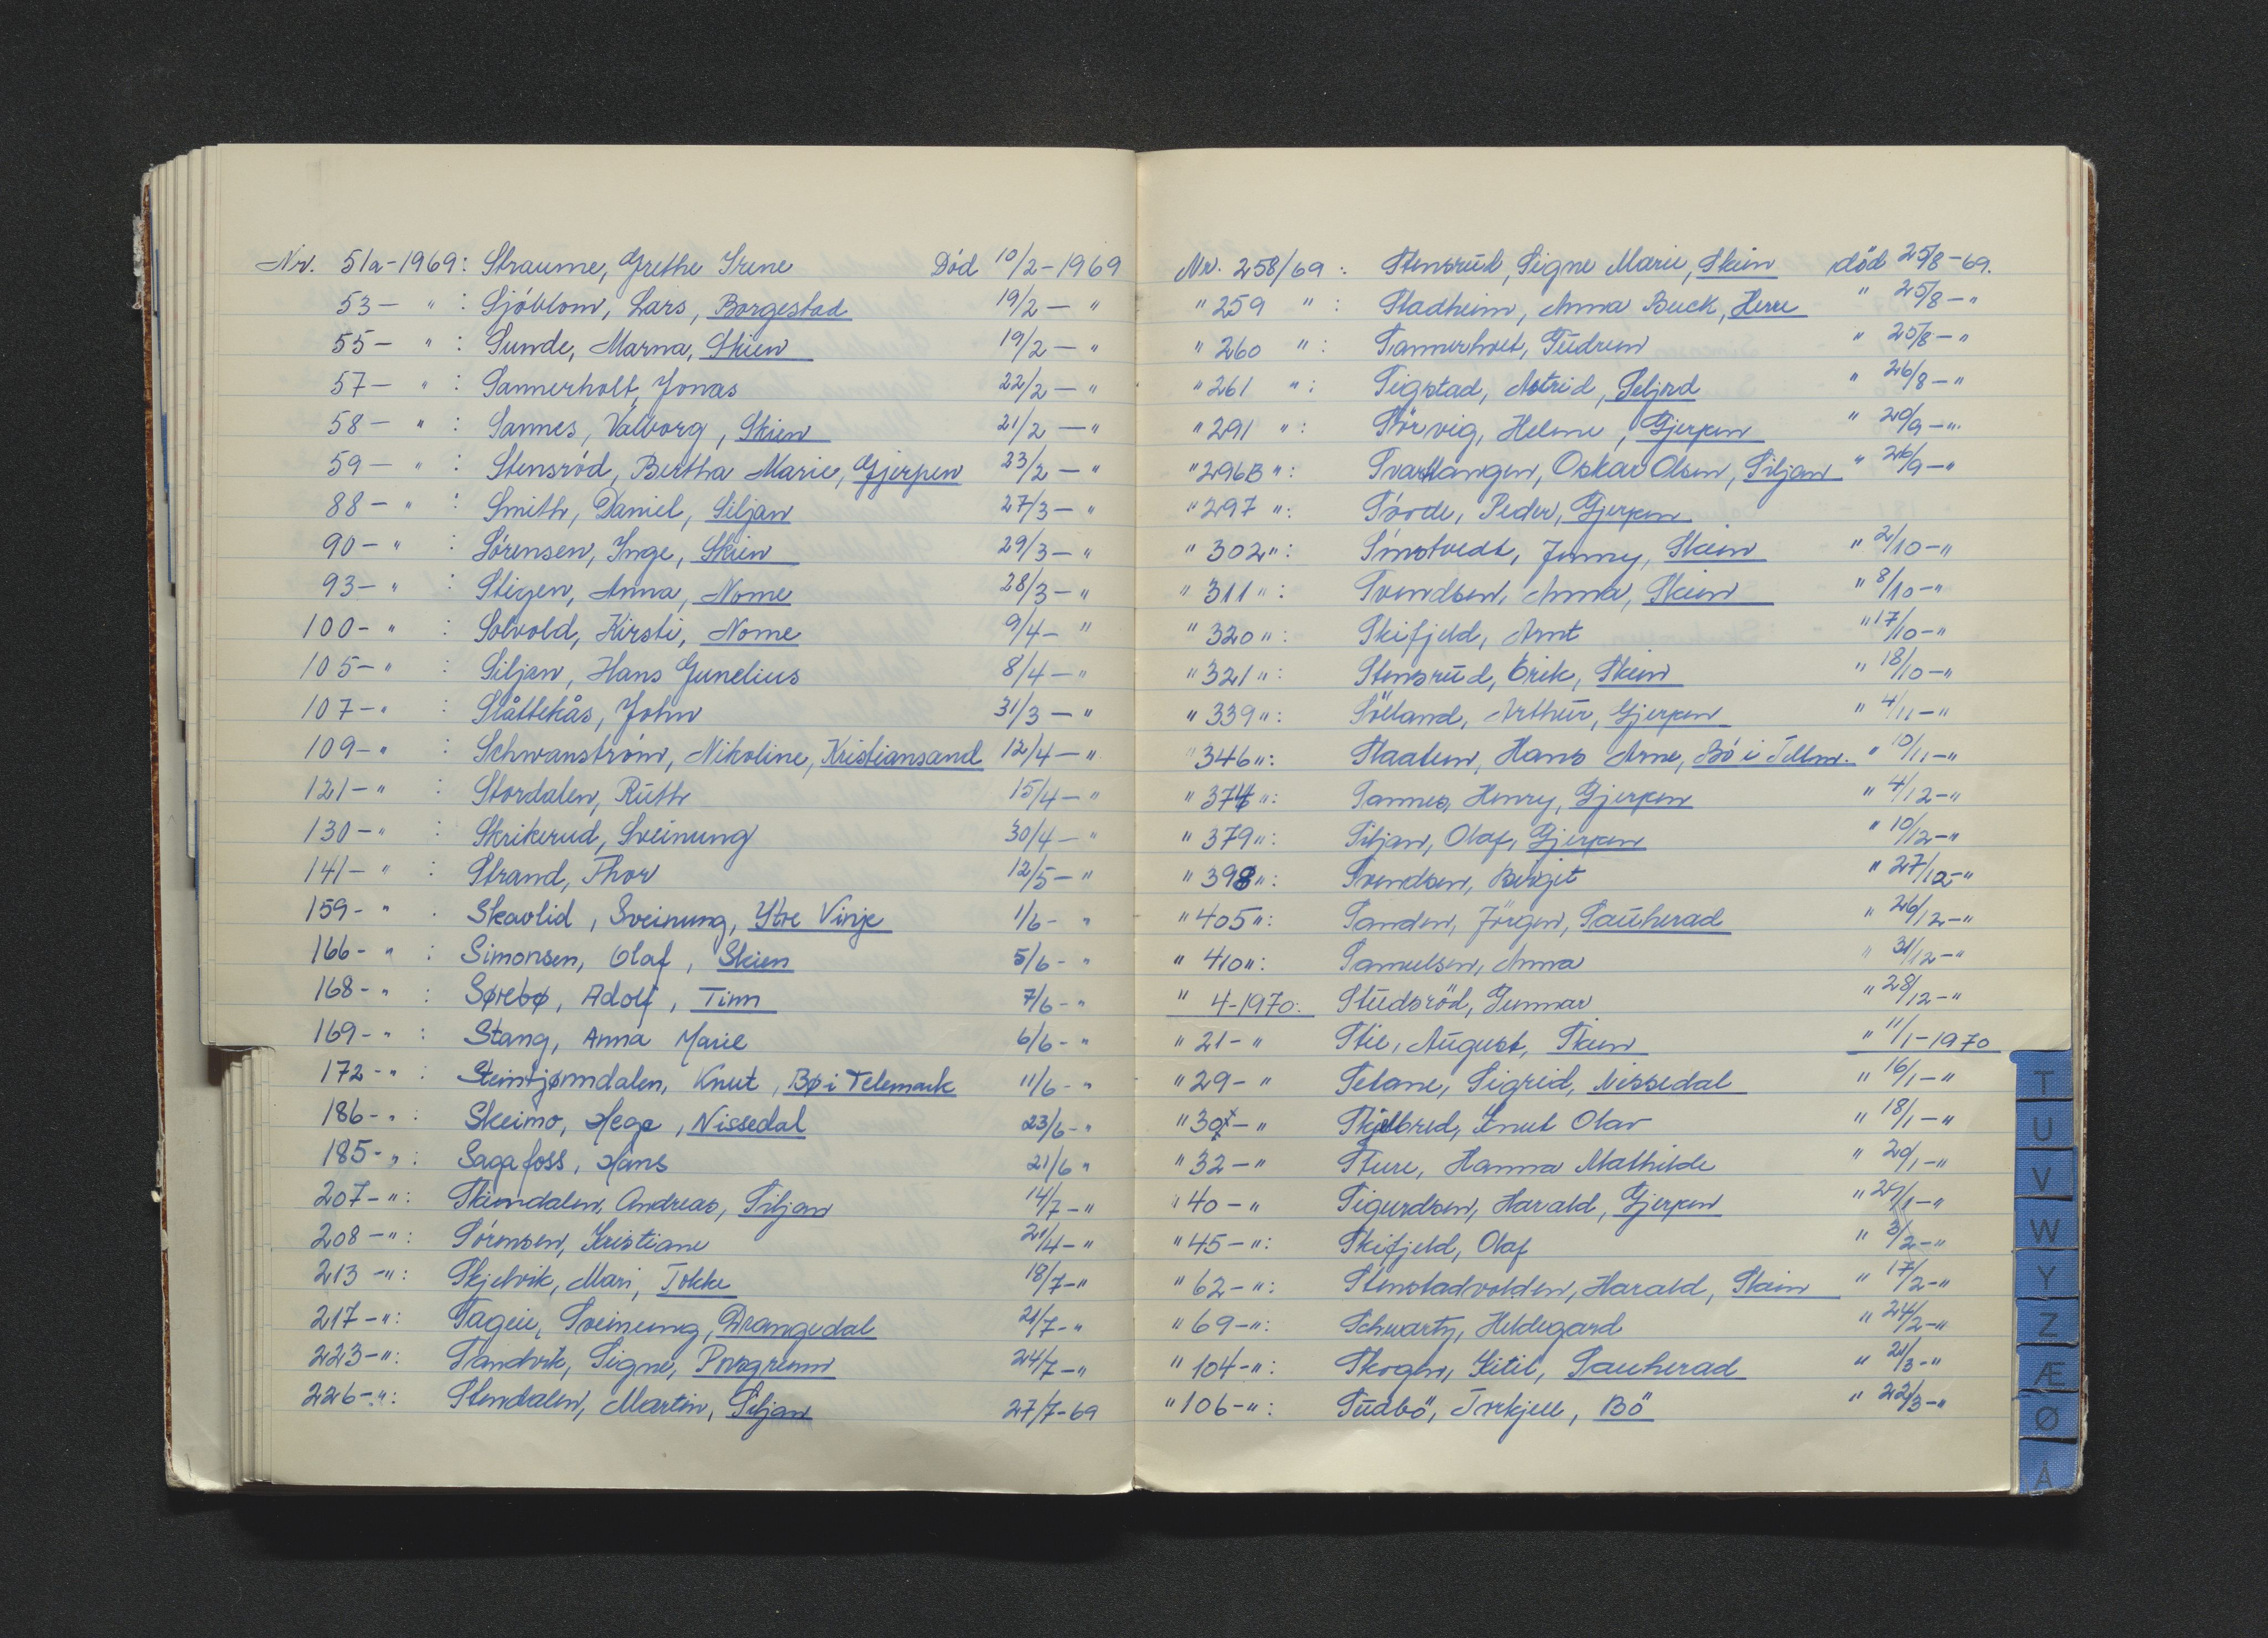 Nr. 51a-1969: Straume, Grethe Irene Död 10/2-1969
53- " : Sjöblom, Lars, Borgestad 19/2- "
55- " : Sunde, Marna, Skien 19/2- "
57- " : Sannerholt, Jonas 22/2- "
58- " : Sannes, Valborg, Skien 21/2- "
59- " : Stensröd, Bertha Marie, Gjerpen 23/2- "
88- " : Smith, Daniel, Siljan 27/3- "
90- " : Sörensen, Inge, Skien 29/3- "
93- " : Stigen, Anna, Nome 28/3- "
100- " : Solvold, Kirsti, Nome 9/4- "
105- " : Siljan, Hans Gunelius 8/4- "
107- " : Slåttekås, John 31/3- "
109- " : Schwanström, Nikoline, Kristiansand 12/4- "
121- " : Stordalen, Ruth 15/4- "
130- " : Skrikerud, Sveinung 30/4- "
141- " : Strand, Thor 12/5- "
159- " . Skavlid, Sveinung, Ytre Vinje 1/6- "
166- " : Simonsen, Olaf, Skien 5/6- "
168- " : Sørebø, Adolf, Tinn 7/6- "
169- " : Stang, Anna Marie 6/6- "
172- " : Steintjønndalen, Knut, Bø i Telemark 11/6- "
186- " : Skeimo, Hege, Nissedal 23/6- "
185- " : Sagafoss, Hans 21/6 "
207- " : Skiendalen, Andreas, Siljan 14/7- "
208- " : Sörensen, Kristiane 21/4- "
213- " : Skjelvik, Mari, Tokke 18/7- "
217- " : Sageie, Sveinung, Drangedal 21/7- "
223- " : Sandvik, Signe, Porsgrunn 24/7- "
226- " : Stendalen, Martin, Siljan 27/7-69
Nr. 258/69: Stensrud, Signe Marie, Skien död 25/8-69.
" 259 " : Stadheim, Anna Buck, Herre " 25/8- "
" 260 " : Sannerholt, Gudrun " 25/8- "
" 261 " : Sigstad, Astrid, Seljord " 26/8- "
" 291 " : Störvig, Helene, Gjerpen " 20/9- "
" 296B " : Svartangen, Oskar Olsen, Siljan " 26/9- "
" 297 " : Sörde, Peder, Gjerpen
" 302 " : Smstvedt, Jenny, Skien " 2/10- "
" 311 " : Svendsen, Anna, Skien " 8/10- "
" 320 " : Skifjeld, Arnt " 17/10- "
" 321 " : Stensrud, Erik, Skien " 18/10- "
" 339 " : Sölland, Arthur, Gjerpen " 4/11- "
" 346 " : Staalen, Hans Arne, Bö i Telem. " 10/11- "
" 374 " : Sannes, Henry, Gjerpen " 4/12- "
" 379 " : Siljan, Olaf, Gjerpen " 10/12- "
" 398 " : Svendsen, Birgit " 27/12- "
" 405 " : Sanden, Jörgen, Sauherad " 26/12- "
" 410 " : Samuelsen, Anna " 31/12- "
" 4-1970: Studsröd, Gunnar " 28/12- "
" 21- " Stie, August, Skien " 11/1-1970
" 29- " Selane, Sigrid, Nissedal " 16/1- "
" 30- " Skjelbred, Knut Olav " 18/1- "
" 32- " Sture, Hanna Mathilde " 20/1- "
" 40- " Sigurdsen, Harald, Gjerpen " 29/1- "
" 45- " : Skifjeld, Olaf " 3/2- "
" 62- " : Stenstadvolden, Harald, Skien " 17/2- "
" 69- " : Schwartz, Hildegard " 24/2- "
" 104- " : Skogen, Kitil, Sauherad " 21/3- "
" 106- " : Sudbö, Torkjell, Bö " 22/3- "
T
U
V
W
Y
Z
Æ
Ø
Å